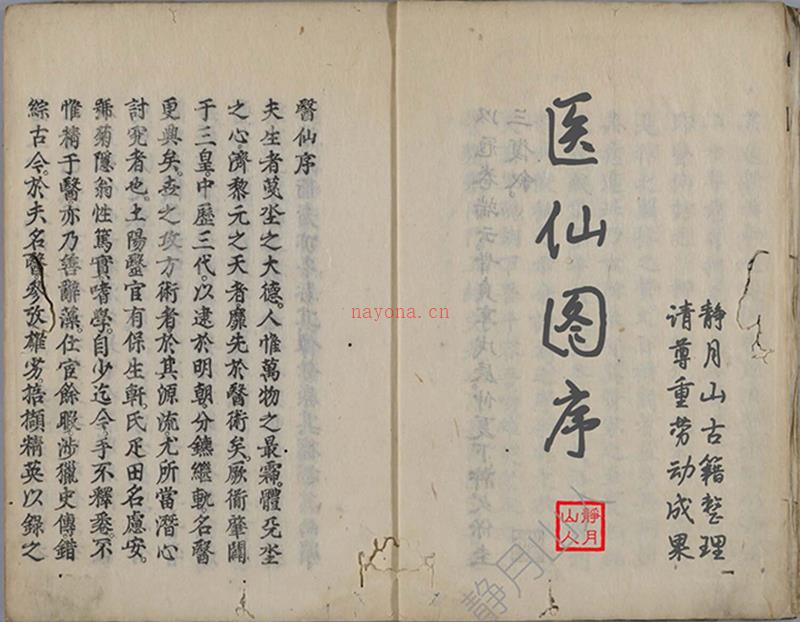 医仙图序
静月山古籍整理
请尊重劳动成果
靜月
山人
静月山人
nayona.cn
三復
以冠卷端云
醫仙序
夫生者蓂坐之大德。人惟萬物之最霛。體
之心。濟黎元之夭者。靡先於醫術矣。厥術肇闢
于三皇。中歷三代。以逮於明朝。分鑣繼軌。名醫
更興矣。之攻方術者。於其源流。尤所當潛心
討究者也。土陽醫官有保生軒。氏疋田名慮安。
號菊隱翁。性篤實嗜學。自少迄今。手不釋卷。不
惟精于醫。亦乃善辭藻。仕宦餘暇。涉獵史傳。錯
綜古今。於夫名醫。參攷雄劣。掊擷精英。以錄之